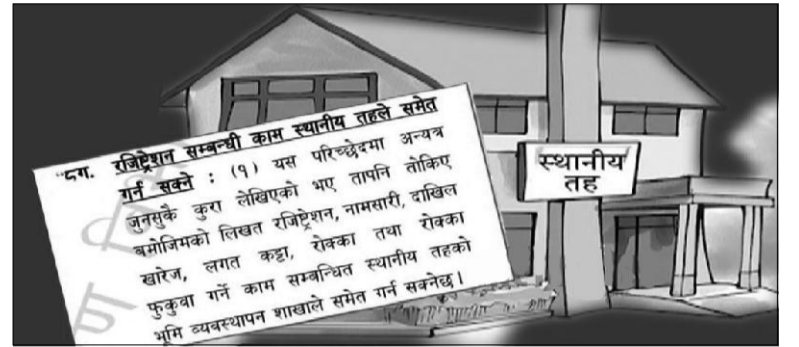 "८ग. रजिष्ट्रेशन सम्बन्धी काम स्थानीय तहले समेत
गर्न सक्ने : (१) यस परिच्छेदमा अन्यत्र
जुनसुकै कुरा लेखिएको भए तापनि तोकिए
बमोजिमको लिखत रजिष्ट्रेशन, नामसारी, दाखिल
खारेज, लगत कट्टा, रोक्का तथा रोक्का
फुकुवा गर्ने काम सम्बन्धित स्थानीय तहको
भूमि व्यवस्थापन शाखाले समेत गर्न सक्नेछ।
स्थानीय
तह